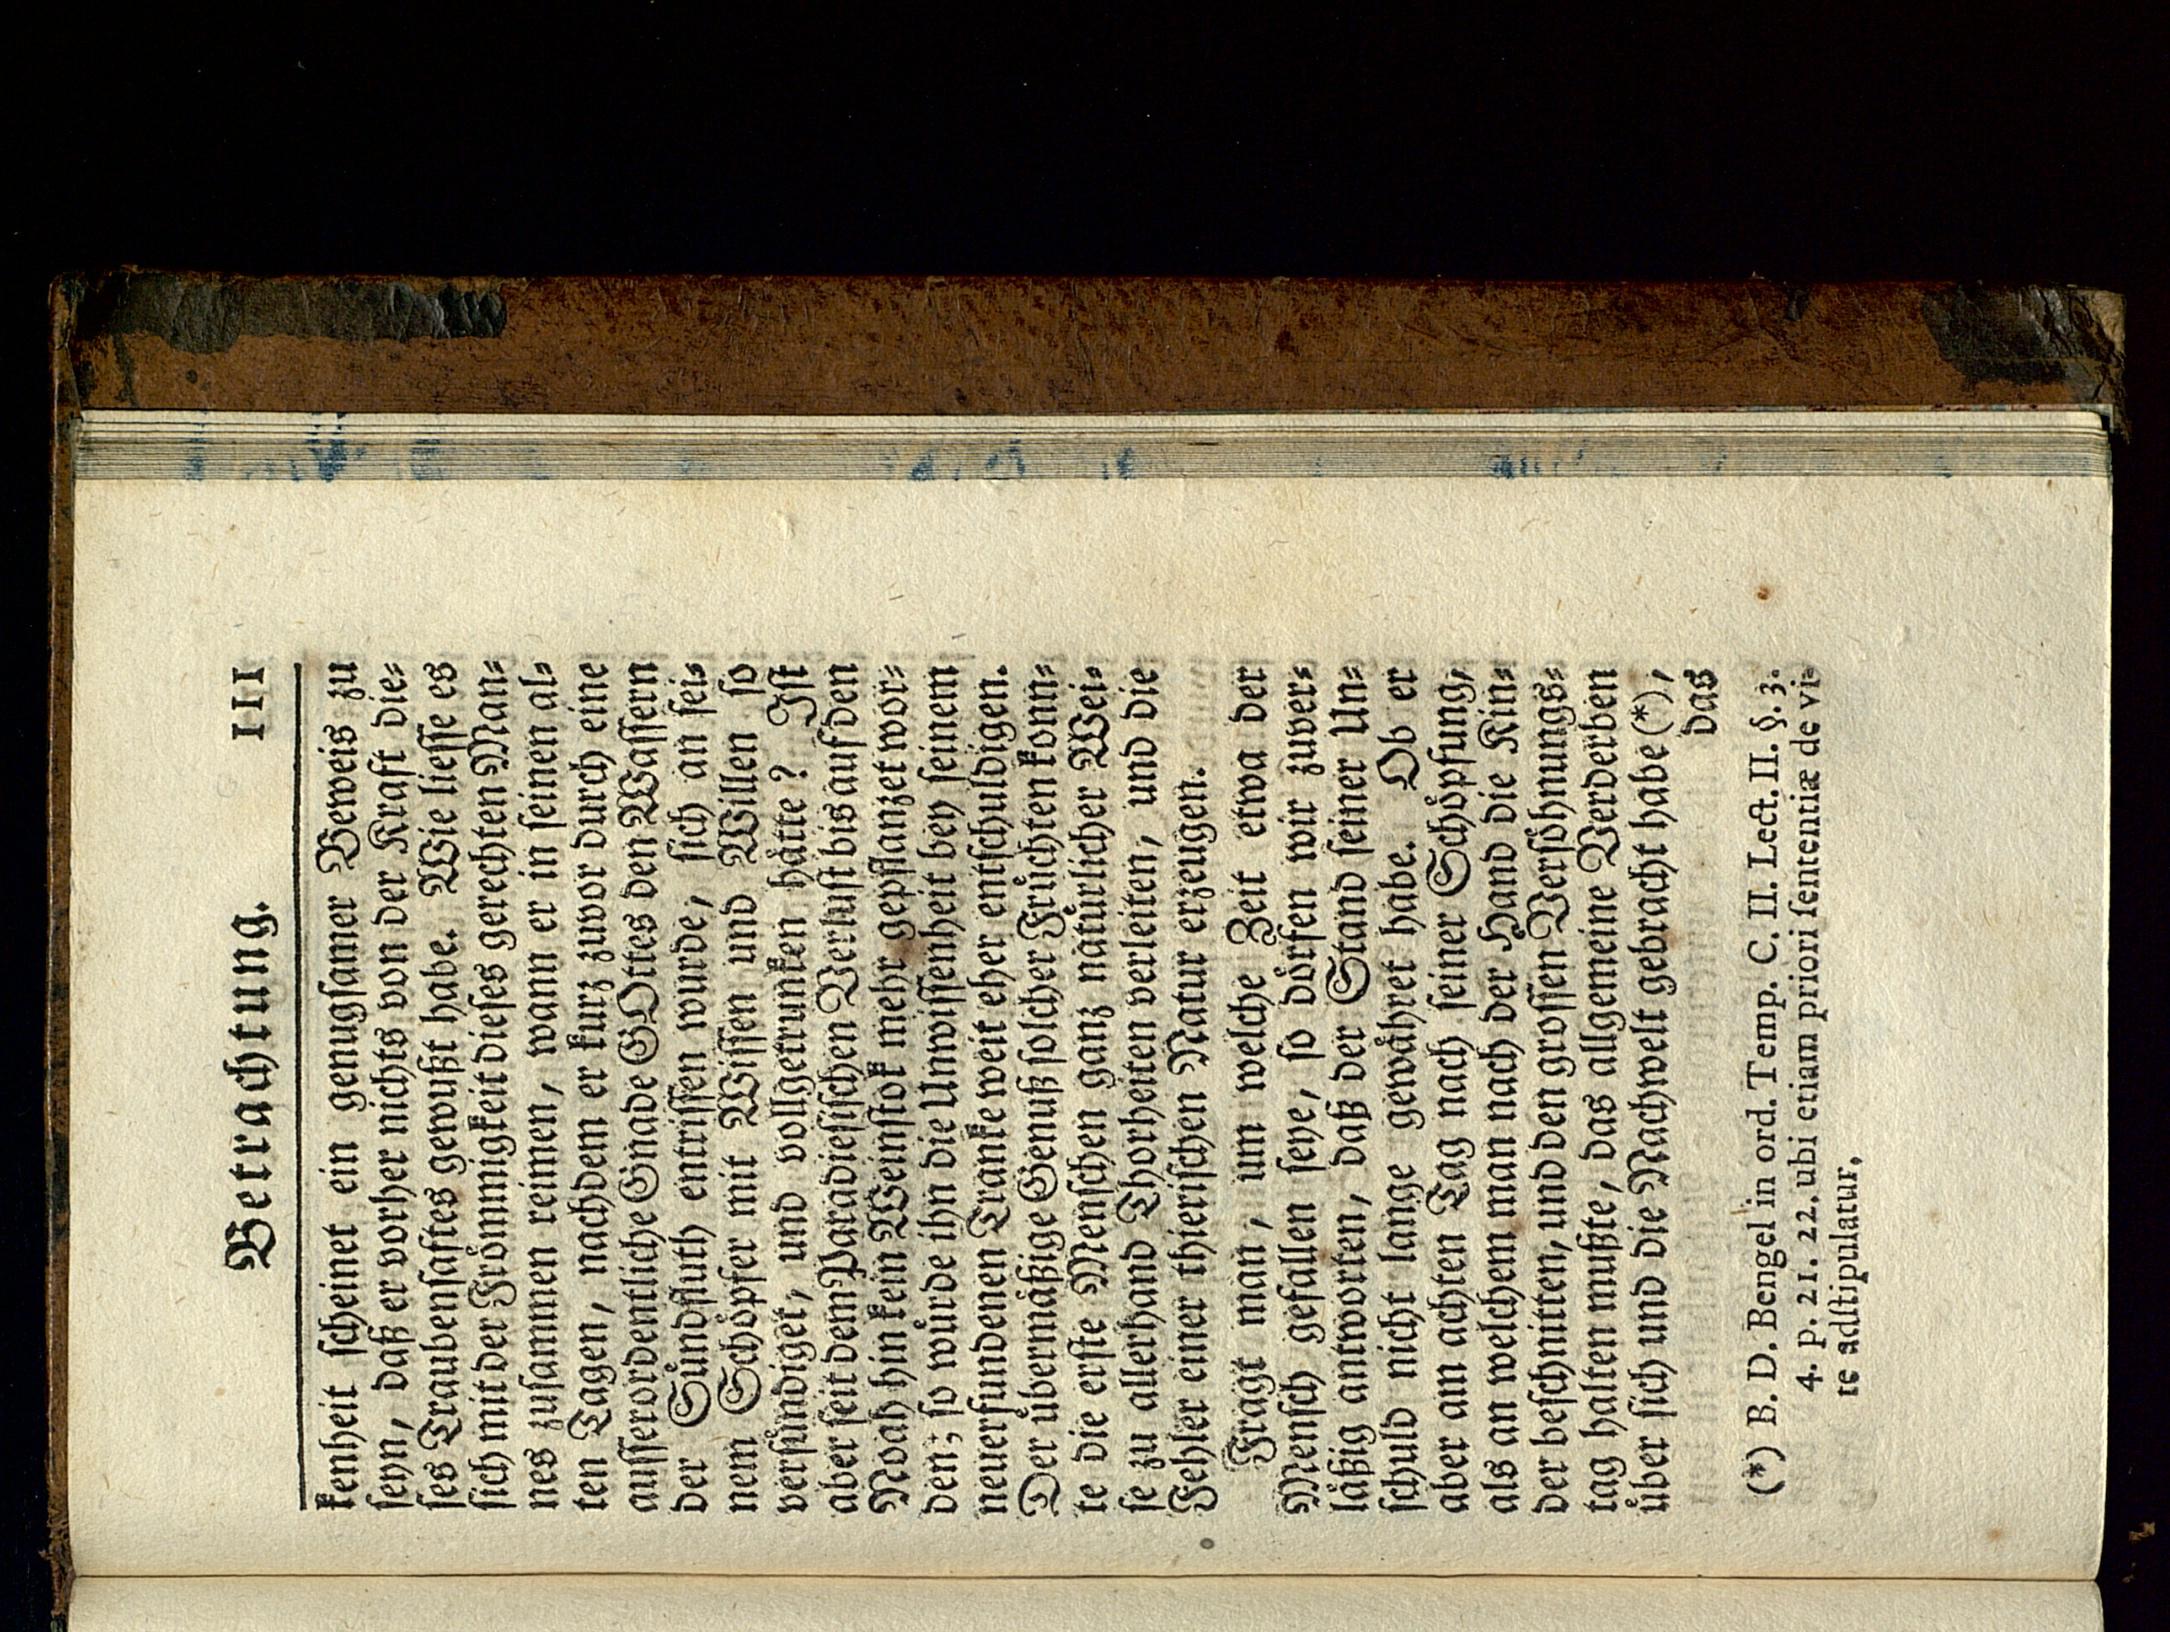 Betrachtung. 111
kenheit scheinet ein genugsamer Beweis zu
seyn, daß er vorher nichts von der Kraft die-
ses Traubensaftes gewußt habe. Wie liesse es
sich mit der Frömmigkeit dieses gerechten Man-
nes zusammen reimen, wann er in seinen al-
ten Tagen, nachdem er kurz zuvor durch eine
ausserordentliche Gnade GOttes den Wassern
der Sündfluth entrissen wurde, sich an sei-
nem Schöpfer mit Wissen und Willen so
versündiget, und vollgetrunken hätte? Ist
aber seit dem Paradiesischen Verlust bis auf den
Noah hin kein Weinstok mehr gepflanzet wor-
den; so würde ihn die Unwissenheit bey seinem
neuerfundenen Tranke weit eher entschuldigen.
Der übermäßige Genuß solcher Früchten konn-
te die erste Menschen ganz natürlicher Wei-
se zu allerhand Thorheiten verleiten, und die
Fehler einer thierischen Natur erzeugen.
Fragt man, um welche Zeit etwa der
Mensch gefallen seye, so dörfen wir zuver-
läßig antworten, daß der Stand seiner Un-
schuld nicht lange gewähret habe. Ob er
aber am achten Tag nach seiner Schöpfung,
als an welchem man nach der Hand die Kin-
der beschnitten, und den grossen Versöhnungs-
tag halten mußte, das allgemeine Verderben
über sich und die Nachwelt gebracht habe (*),
das
(*) B. D. Bengel in ord. Temp. C. II. Lect. II. §. 3.
4. p. 21. 22. ubi etiam priori sententiæ de vi-
te adstipulatur.